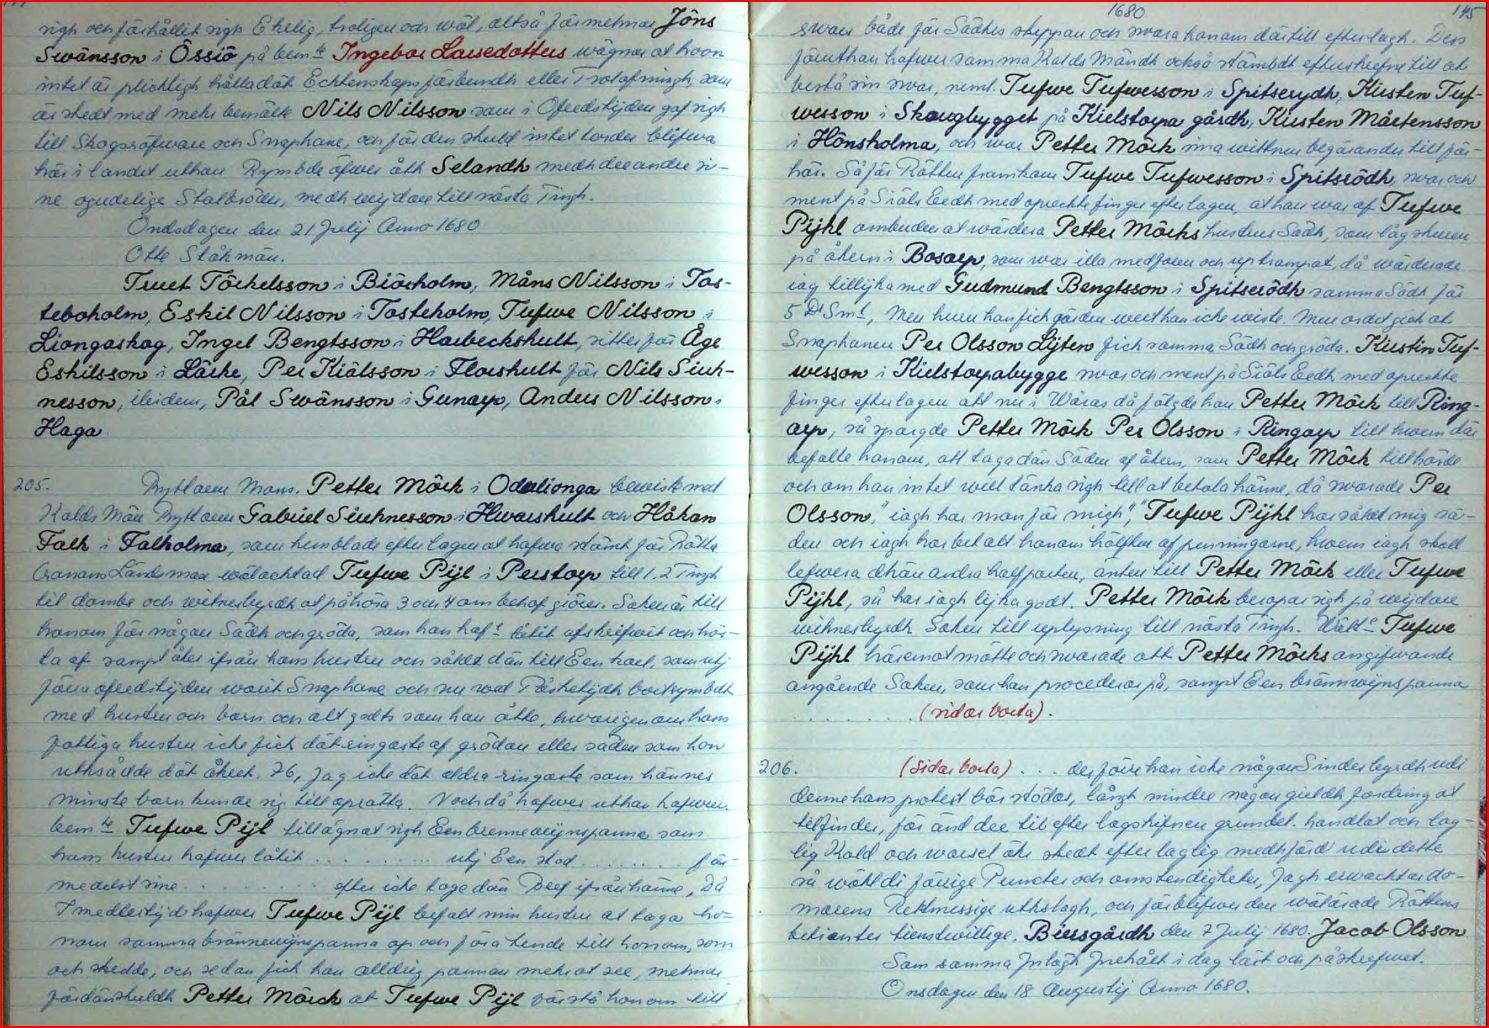 sigh och förhållit sigh Ehelig, troligen och wäl, altså förmehnar Jöns
Swänsson i Össiö på bem:te Ingebor Larsedotters wägnar at hoon
intet är plichtigh hålla dät Echtenskaps förbundh eller Trolofningh, som
är skedt med mehr bemälte Nils Nilsson som i Ofredstijden gaf sigh
till Skogsröfware och Snaphane, och för den skuld intet torder blifwa
här i landet uthan Rymbde öfwer åth Selandh medh dee andre si-
ne ogudelige Stalbröder, medh wijdare till nästa Tingh.
Ondsdagen den 21 Julij Anno 1680
Otte Ståkman.
Truet Törkelsson i Biörholm, Måns Nilsson i Tos-
teboholm, Eskil Nilsson i Tosteholm, Tufwe Nilsson i
Liongaskog, Ingel Bengtsson i Harbeckshult, sitter för Åge
Eskilsson i Lärke, Per Kiälsson i Florshult för Nils Sivh-
nesson, ibidem, Pål Swänsson i Gunarp, Anders Nilsson i
Haga
205. Ryttaren Mons. Petter Mörk i Oderlionga bewiste med
Kalds Män Ryttaren Gabriel Sivhnesson i Hwarshult och Håkan
Falk i Falholma, som hemblade efter lagen at hafwa stämt för Rätta
Cronans Ländsman wälachtad Tufwe Pijl i Perstorp till 1. 2 Tingh
til dombs och witnesbyrdh at påhöra 3 om 4 om behof giöres. Saken är till
honom för någon Sädh och gröda, som han haf:r låtit afskeifwit och hös-
ta af sampt åker ifrån hans hustru och såldt dän till Een karl, som uthj
förra ofredstijden warit Snaphane och nu wed Påsketijdh bortrymbdt
med hustru och barn och alt godts som han åtte, hwarigenom hans
fattiga hustru icke fick dät ringaste af grödan eller säden som hon
uthsådde dät åhret. 76, Jag icke dät aldra ringaste som hännes
minste barn kunde sig till oprätta. Noch då hafwer uthan hafwer
bem:te Tufwe Pijl tillägnat sigh Een brennewijnspanna som
hans hustru hafwer låtit . . . . . . . . . uthj Een stod . . . . . . . . . för-
medelst sine . . . . . . . . . efter icke toge dän Deef ifrån hänne, Då
I medlertijd hafwer Tufwe Pijl befalt min hustru at taga ho-
nom samma brännewijnspanna op och föra hende till honom, som
och skedde, och sedan fick han alldrig pannan mehr at see, mehnar
fördänskuldh Petter Mörck at Tufwe Pijl bör stå honom till
1680 145
swars både för Sädhes skeppan och swara honom där till efter lagh. Dess
föruthan hafwer samma Kalds Mändh också stämbdt efterskrefne till at
bestå sin swar, neml. Tufwe Tufwesson i Spitserydh, Kirsten Tuf-
wesson i Skougbygget på Kielstorpa gårdh, Kirsten Mårtensson
i Hönsholma, och war Petter Mörk sina wittnen begärandes till för-
hör. Så för Rätten framkom Tufwe Tufwesson i Spitsrödh, swor och
ment på Siäls Eedh med opreckte finger efter lagen, at han war af Tufwe
Pijhl ombuden at wärdera Petter Mörchs hustrus Sädh, som låg skuren
på åkern i Bosarp, som war illa medfaren och uptrampat, då wärderade
iag tillijka med Gudmund Bengtsson i Spitserödh samma Sädh för
5 Dr Smt, Men hwem han fich gården weet han iche wiste. Men ordet gick at
Snaphanen Per Olsson Lijten fich samma Sädh och gröda. Kirstin Tuf-
wesson i Kielstorpabygge swor och ment på Siäls Eedh med opreckte
finger efter lagen att nu i Wåras då fölgde han Petter Mörk till Ring-
arp, så sporgde Petter Mörk Per Olsson i Ringarp till hwem där
befalte honom, att taga dän Säden af åkern, som Petter Mörk tillhörde
och om han intet will tänka sigh till at betala hänne, då swarade Per
Olsson, "iagh har man för migh", "Tufwe Pijhl har såldt mig sä-
den och iagh har betalt honom hälften af penningarne, hwem iagh skall
lefwera dhän andra halfparten, änten till Petter Mörk eller Tufwe
Pijhl, så har iagh lijka godt. Petter Mörk beropar sigh på wijdare
witnesbyrdh Saken till uplysning till nästa Tingh. Wäkt:e Tufwe
Pijhl häremot mötte och swarade att Petter Mörchs angifwande
angående Saken, som han procederar på, sampt Een brännwijnspanna
. . . . . . . . . . (sidor borta).
206. (Sidor borta) . . . derföre han iche någon Sinderbyrdh udi
denne hans protest bör stödas, långh mindre någon guldh fordring at
tilfinder, för änd dee til efter lagskifnen grundel. handlat och lag-
lig Kald och warsel ähr skedt efter laglig medhförd udi dette
så wähl di förrige Puncter och omstendigheter, Jagh erwachtar do-
marens Rettmessige uthslagh, och förblifwer den wälärade Rättens
betienter tienstwillige. Biersgårdh den 7 Julij 1680. Jacob Olsson
Som samma Inlagh Inehålt i dag läst och påskrefwet.
Onsdagen den 18 Augustij Anno 1680.